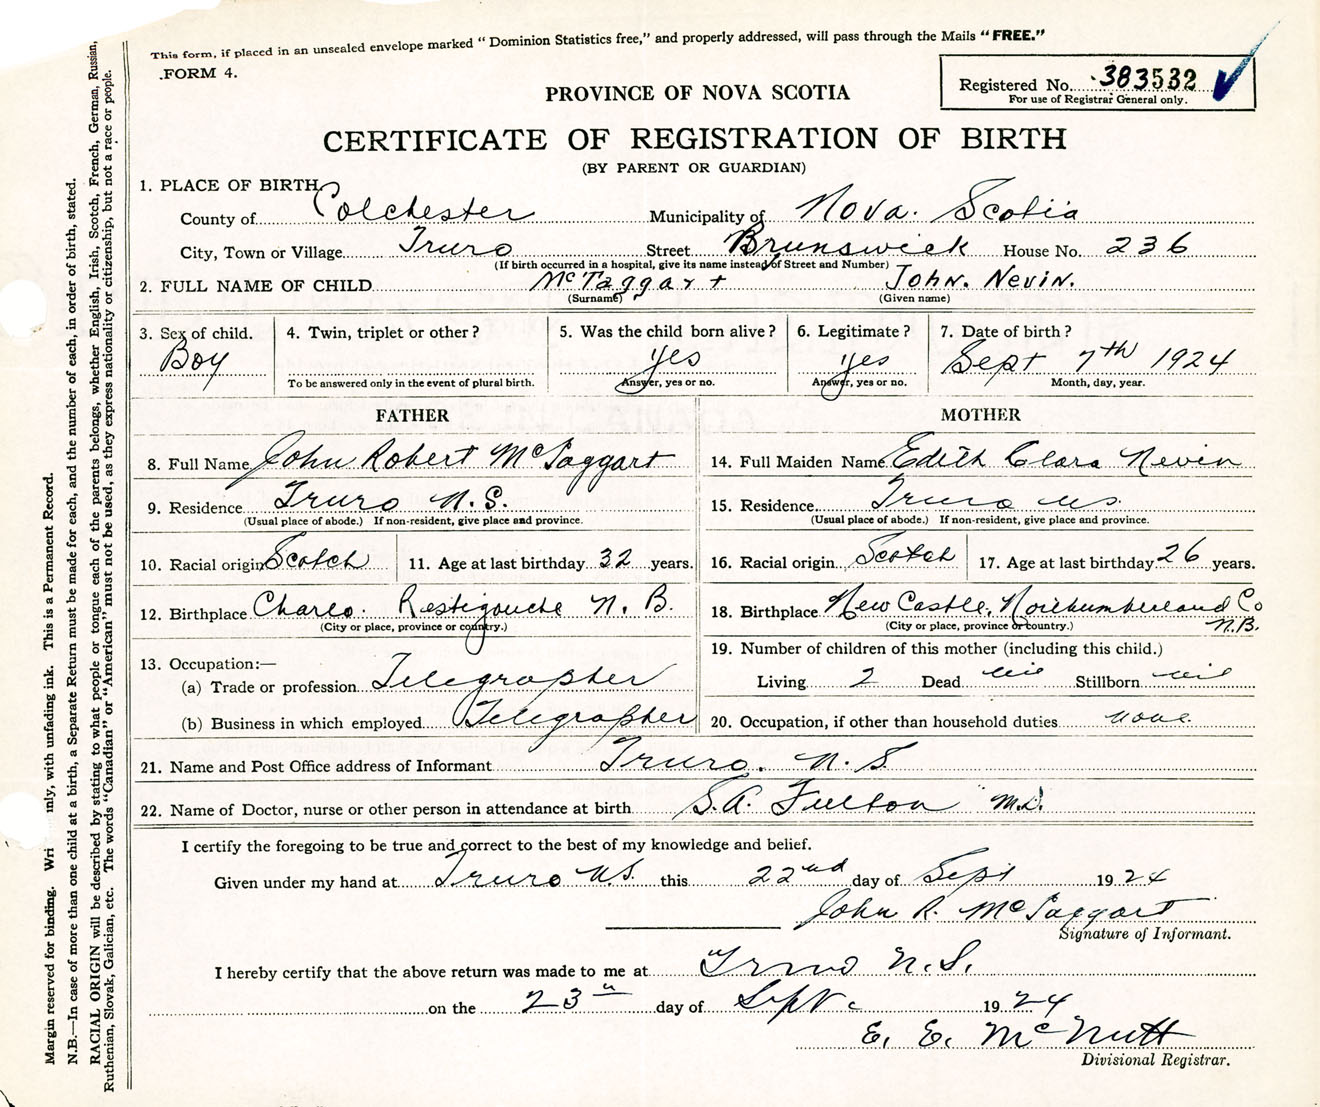 This form, if placed in an unsealed envelope marked "Dominion Statistics free," and properly addressed, will pass through the Mails "FREE."
FORM 4.
Registered No. 383532
For use of Registrar General only.
PROVINCE OF NOVA SCOTIA
CERTIFICATE OF REGISTRATION OF BIRTH
(BY PARENT OR GUARDIAN)
1. PLACE OF BIRTH
County of Colchester Municipality of Nova Scotia
City, Town or Village Truro Street Brunswick House No. 236
(If birth occurred in a hospital, give its name instead of Street and Number)
2. FULL NAME OF CHILD McTaggart John. Nevin.
(Surname) (Given name)
3. Sex of child. 4. Twin, triplet or other? 5. Was the child born alive? 6. Legitimate? 7. Date of birth?
Boy yes yes Sept 7th 1924
To be answered only in the event of plural birth. Answer, yes or no. Answer, yes or no. Month, day, year.
FATHER MOTHER
8. Full Name John Robert McTaggart 14. Full Maiden Name Edith Clara Nevin
9. Residence Truro N.S. 15. Residence Truro N.S.
(Usual place of abode.) If non-resident, give place and province. (Usual place of abode.) If non-resident, give place and province.
10. Racial origin Scotch 11. Age at last birthday 32 years. 16. Racial origin Scotch 17. Age at last birthday 26 years.
12. Birthplace Charlo. Restigouche N.B. 18. Birthplace New Castle, Northumberland Co
N.B.
(City or place, province or country.) (City or place, province or country.)
13. Occupation:— 19. Number of children of this mother (including this child.)
(a) Trade or profession Telegrapher Living 2 Dead nil Stillborn nil
(b) Business in which employed Telegrapher 20. Occupation, if other than household duties none
21. Name and Post Office address of Informant Truro. N.S
22. Name of Doctor, nurse or other person in attendance at birth S.A. Fulton M.D.
I certify the foregoing to be true and correct to the best of my knowledge and belief.
Given under my hand at Truro N.S. this 22nd day of Sept 1924
John R. McTaggart
Signature of Informant.
I hereby certify that the above return was made to me at Truro N.S.
on the 23 day of Sept 1924
E. E. McNutt
Divisional Registrar.
Margin reserved for binding. Wri nly, with unfading ink. This is a Permanent Record.
N.B.—In case of more than one child at a birth, a Separate Return must be made for each, and the number of each, in order of birth, stated.
RACIAL ORIGIN will be described by stating to what people or tongue each of the parents belongs, whether English, Irish, Scotch, French, German, Russian,
Ruthenian, Slovak, Galician, etc. The words "Canadian" or "American" must not be used, as they express nationality or citizenship, but not a race or people.